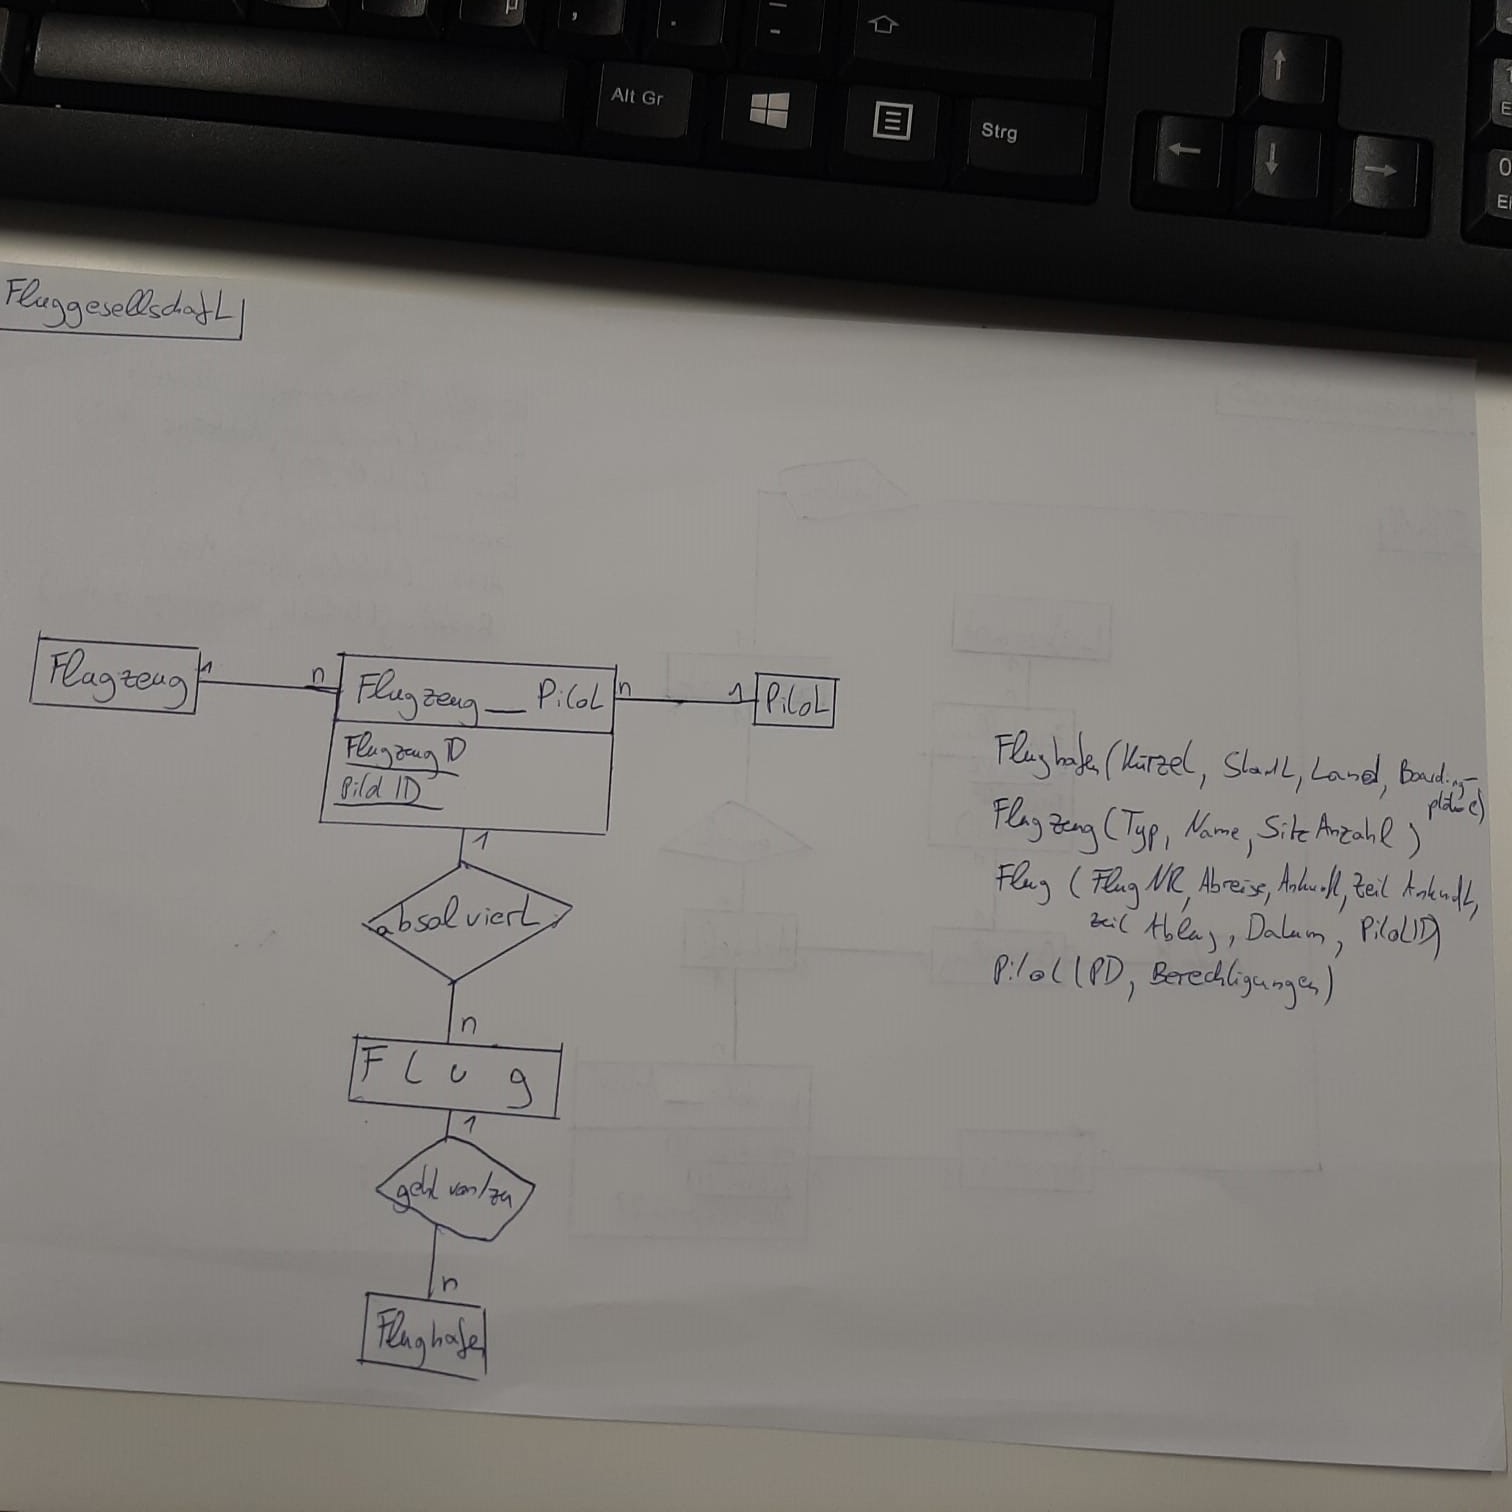 Alt Gr
Strg
Fluggesellschaft
Flugzeug
1
n
Flugzeug__Pilot
n
1
Pilot
Flugzeug ID
Pilot ID
1
absolviert
n
Flug
1
geht von/zu
n
Flughafen
Flughafen (Kürzel, Stadt, Land, Boarding-
plätze)
Flugzeug (Typ, Name, Sitz Anzahl)
Flug (Flug NR, Abreise, Ankunft, Zeit Ankunft,
Zeit Abflug, Datum, PilotID)
Pilot (PD, Berechtigungen)